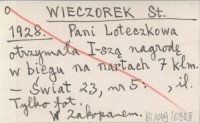 WIECZOREK St.
1928. Pani Loteczkowa
otrzymała I-szą nagrodę
w biegu na nartach 7 klm.
— Świat 23, nr 5: , il.
Tylko fot.
W Zakopanem.